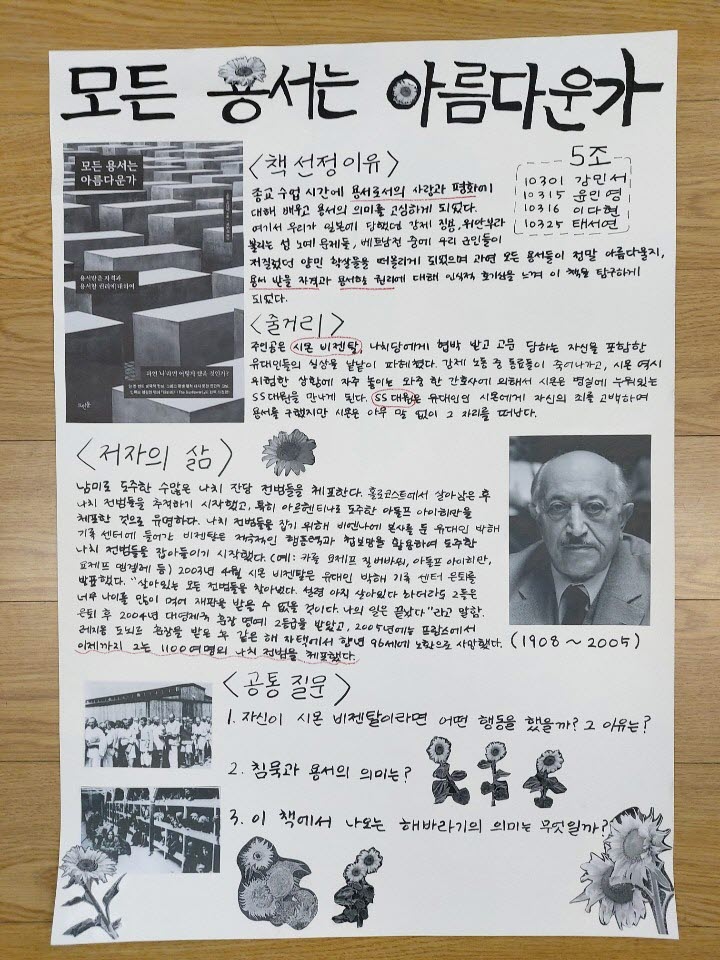 모든 용서는 아름다운가
모든 용서는
아름다운가
용서받을 자격과
용서할 권리에 대하여
과연 나라면 어떻게 했을 것인가?
<책 선정 이유>
종교 수업 시간에 용서로서의 사랑과 평화에
대해 배우고 용서의 의미를 고심하게 되었다.
여기서 우리가 일본에 당했던 강제 징용, 위안부라
불리는 성 노예 문제들, 베트남전 중에 우리 군인들이
저질렀던 양민 학살들을 떠올리게 되었으며 과연 모든 용서들이 정말 아름다울지,
용서 받을 자격과 용서할 권리에 대해 인식적 호기심을 느껴 이 책을 탐구하게
되었다.
5조
10301 강민서
10315 윤민영
10316 이다현
10325 태서연
<줄거리>
주인공은 시몬 비젠탈, 나치당에게 협박 받고 고문 당하는 자신을 포함한
유대인들의 실상을 낱낱이 파헤쳤다. 강제 노동 중 동료들이 죽어나가고, 시몬 역시
위험한 상황에 자주 놓이는 와중 한 간호사에 의해서 시몬은 병실에 누워있는
SS대원을 만나게 된다. SS대원은 유대인인 시몬에게 자신의 죄를 고백하며
용서를 구했지만 시몬은 아무 말 없이 그 자리를 떠났다.
<저자의 삶>
남미로 도주한 수많은 나치 잔당 전범들을 체포한다. 홀로코스트에서 살아남은 후
나치 전범들을 추적하기 시작했고, 특히 아르헨티나로 도주한 아돌프 아이히만을
체포한 것으로 유명하다. 나치 전범들을 잡기 위해 비엔나에 본사를 둔 유대인 박해
기록 센터에 들어가 비젠탈은 적극적인 행동력과 첩보망을 활용하여 도주한
나치 전범들을 잡아들이기 시작했다. (예: 카를 요제프 질버바워, 아돌프 아이히만,
요제프 멩겔레 등) 2003년 4월 시몬 비젠탈은 유대인 박해 기록 센터 은퇴를
발표했다. "살아있는 모든 전범들을 찾아냈다. 설령 아직 살아있다 하더라도 그들은
너무 나이를 많이 먹어 재판을 받을 수 없을 것이다. 나의 일은 끝났다"라고 말함.
은퇴 후 2004년 대영제국 훈장 명예 2등급을 받았고, 2005년에는 프랑스에서
레지옹 도뇌르 훈장을 받은 후 같은 해 자택에서 향년 96세에 노환으로 사망했다.
이제까지 그는 1100여명의 나치 전범을 체포했다.
(1908 ~ 2005)
<공통 질문>
1. 자신이 시몬 비젠탈이라면 어떤 행동을 했을까? 그 이유는?
2. 침묵과 용서의 의미는?
3. 이 책에서 나오는 해바라기의 의미는 무엇일까?